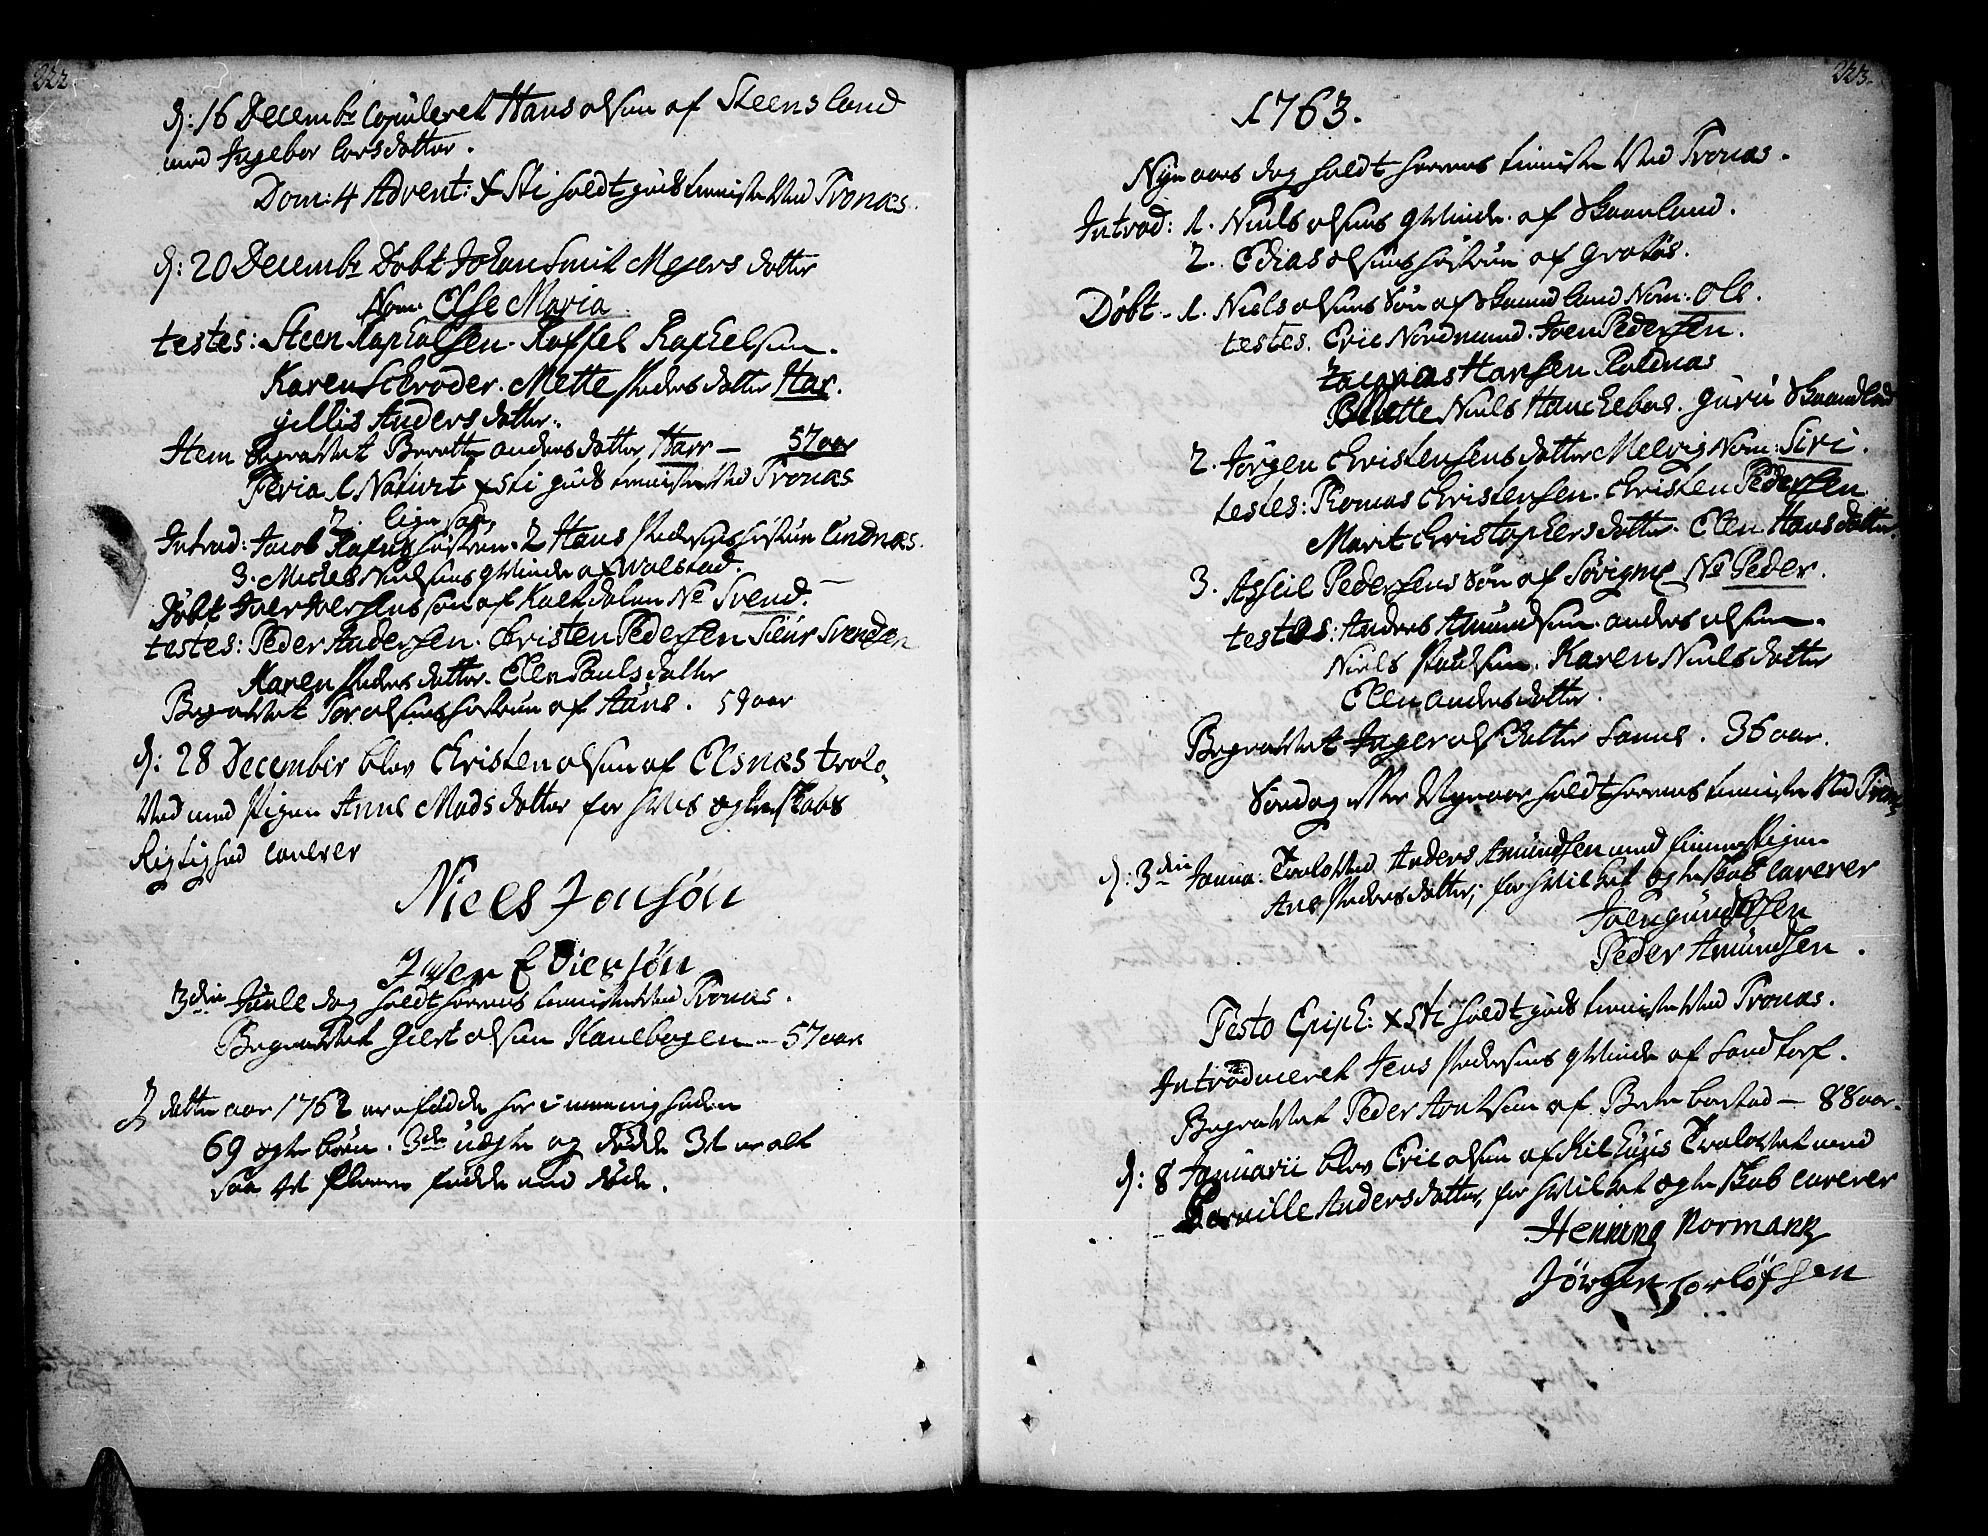 222
d: 16 Decembr Copuleret Hans olsen af Steensland
med Ingebor larsdatter.
Dom: 4 Advent: Xsti holdt guds tieniste ved Tronæs.
d: 20 Decembr Døbt Johan Smit Meyers datter
Nom. Else Maria.
testes: Steen Raphalsen. Raffel Raphelsen.
Karen Schroder. Mette Peders datter Har.
gjllis Anders datter.
Hem Begravet Berette anders datter Harr — 57 aar
Feria 1 Nativit Xsti guds tieniste ved Tronæs
Introd: Jacob hustrue. 2 Hans Pedersens hustrue Lundnæs.
3. Michel Nielsens qvinde af Wolstad.
Døbt Iver Iversens søn af Kaltdalen Ne Svend.
testes: Peder Andersen. Christen Pedersen Siur Svendsen
Karen Peders datter. Elen Pauls datter
Begravet Tor olsens hustrue af Aune. 59 aar
d: 28 December blev Christen olsen af Elsnæs trolo-
ved med Pigen Anne Mads datter for hvis ægteskabs
Rigtighed caverer
Niels Jonsøn
Iver Eviersøn
3die Juule dag holdt herrens tieniste ved Tronæs.
Begravet Giert olsen Kanebogen — 57 aar
I dette aar 1762 ere fødde her i menigheden
69 ægte børn. 3de uægte og døde 31 er alt
saa fleere fødde end døde.
223.
1763.
Nyaars dag holdt herrens tieniste ved Tronæs.
Introd: 1. Niels olsens qvinde af Skaanland.
2. Edias olsens hustrue af grotøs.
Døbt - 1. Niels olsens søn af Skaandland Nom: Ole.
testes. Eric Nordmand. Joen Pedersen.
Zacarias Hansen Roldnæs
Bilette Niels Hanckebas. guru Skaandland
2. Jørgen Christensens datter Melvig Nom: Siri.
testes: Thomas Christensen. Christen Pedersen
Marit Christophers datter. Elen Hans datter.
3. Assiel Pedersens søn af Sørigne Ne Peder.
testes: Anders Amundsen. anders olsen.
Niels Paulsen. Karen Niels datter
Elen anders datter.
Begravet Inger ols datter Sanne. 36 aar.
Søndag efter Nyeaar holdt herrens tieniste ved Tronæs
d: 3die Janua: Trolovet Anders Amundsen med Pigen
Ane Peders datter, for hvilket ægteskab caverer
Joen gundersen
Peder Amundsen.
Festo Epiph: Xsti holdt guds tieniste ved Tronæs.
Introduceret Jens Pedersens qvinde af Sandtorf.
Begravet Peder Arntsen af Breebostad — 88 aar.
d: 8 Januarii blev Eric olsen af Kilhuus Trolovet med
Pernille Anders datter, for hvilket ægteskab caverer
Henning Normann
Jørgen torlöfsen